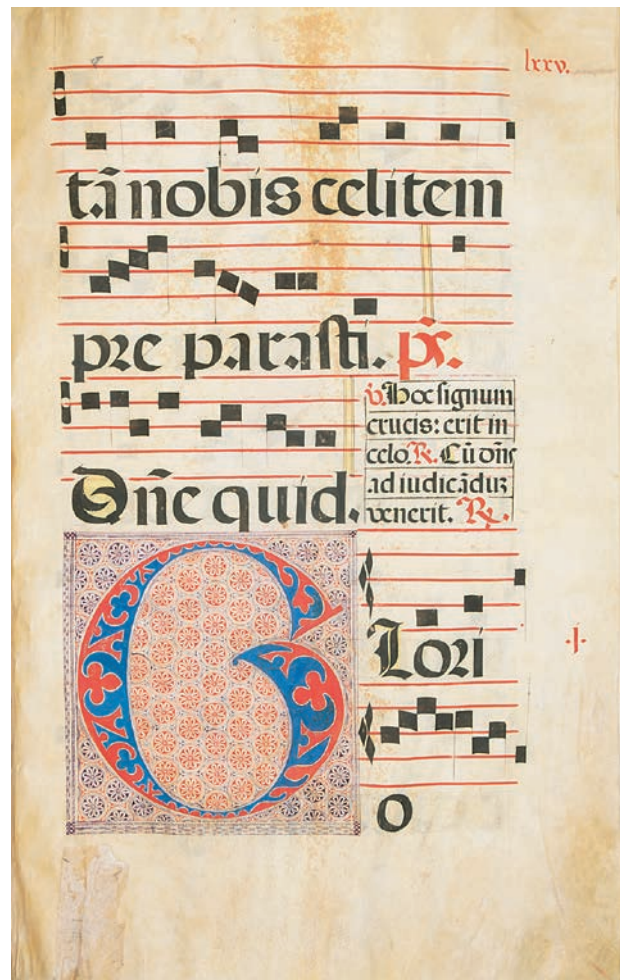 lxxv.
tā nobis celitem
pre parasti. ps̄.
Dn̄e quid.
v̄. Hoc signum
crucis: erit in
celo. R. Cū dn̄s
ad iudicādūz
venerit. R.
G
Lori
.j.
o